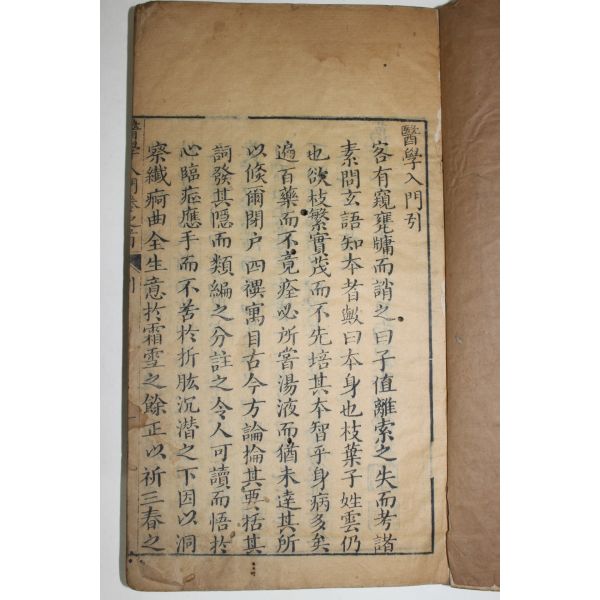 醫學入門引
客有窺甕牖而誚之曰子值離索之失而考諸
素問玄語知本者歟曰本身也枝葉子姓雲仍
也欲枝繁實茂而不先培其本智乎身病多矣
遍百藥而不竟痊必所嘗湯液而猶未達其所
以倏爾閉戶四禩寓目古今方論掄其要括其
詞發其隱而類編之分註之令人可讀而悟於
心臨症應手而不苦於折肱沉潛之下因以洞
察纖痾曲全生意於霜雪之餘正以祈三春之
醫學入門卷之首 引